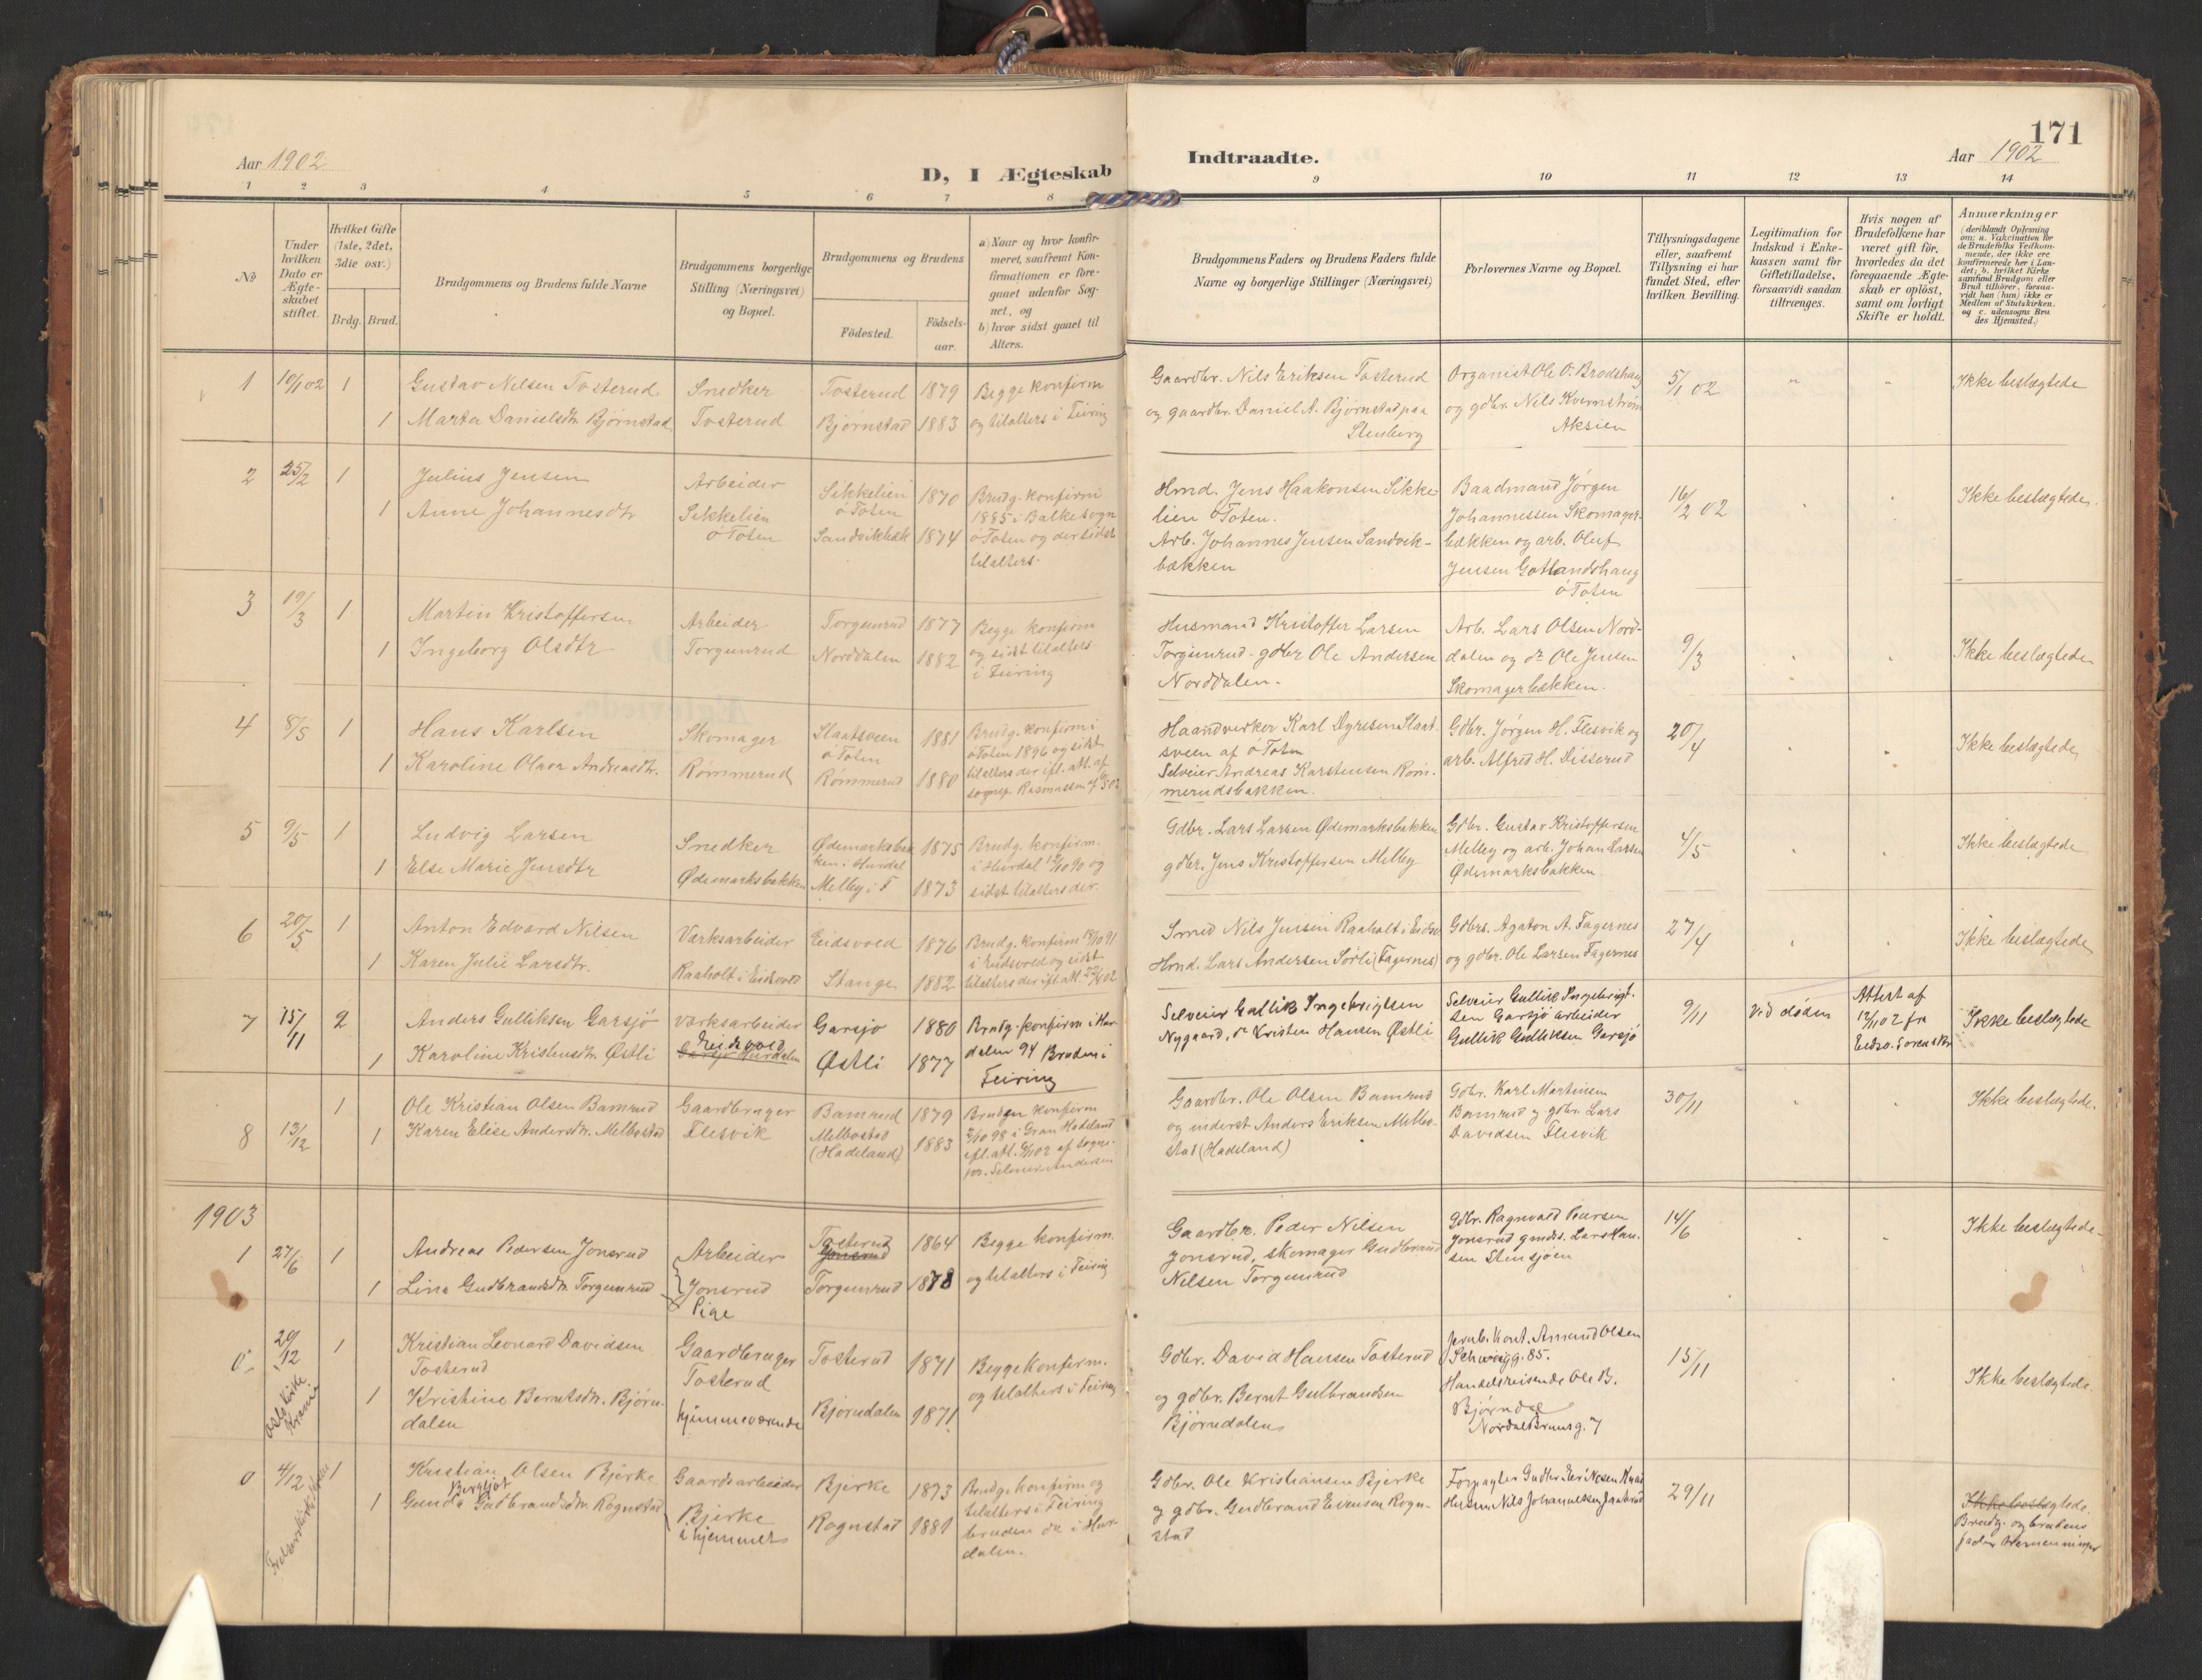 Aar 1902
D, I Ægteskab
Indtraadte.
171
Aar 1902
1 2 3 4 5 6 7 8 9 10 11 12 13 14
No
Under hvilken Dato er Ægteskabet stiftet.
Hvilket Gifte (1ste, 2det, 3die osv.)
Brdg. Brud.
Brudgommens og Brudens fulde Navne
Brudgommens borgerlige Stilling (Næringsvei) og Bopæl.
Brudgommens og Brudens
Födested.
Födsels-aar.
a) Naar og hvor konfirmeret, saafremt Konfirmationen er foregaaet udenfor Sognet, og
b) hvor sidst gaaet til Alters.
Brudgommens Faders og Brudens Faders fulde Navne og borgerlige Stillinger (Næringsvei)
Forlovernes Navne og Bopæl.
Tillysningsdagene eller, saafremt Tillysning ei har fundet Sted, efter hvilken Bevilling.
Legitimation for Indskud i Enkekassen samt for Giftetilladelse, forsaavidt saadan tiltrænges.
Hvis nogen af Brudefolkene har været gift för, hvorledes da det foregaaende Ægteskab er oplöst, samt om lovligt Skifte er holdt.
Anmærkninger
(deriblandt Oplysning om: a. Vakcination for de Brudefolks Vedkommende, der ikke ere konfirmerede her i Landet; b. hvilket Kirkesamfund Brudgom eller Brud tilhörer, forsaavidt han (hun) ikke er Medlem af Statskirken, og c. udensogns Brudes Hjemsted.)
1 10/1 02 1
Gustav Nilsen Tosterud
Snedker
Tosterud 1879
Begge konfirm
1 Marta Danielsdtr. Bjørnstad
Tosterud
Bjørnstad 1883
og tilalters i Feiring
Gaardbr. Nils Eriksen Tosterud
og gaardbr. Daniel A. Bjørnstad paa
Stenberg
Organist Ole O. Brodshaug
og gdbr. Nils Kvernstrøm
Aksien
5/1 02
Ikke beslægtede
2 25/2 1
Julius Jensen
1 Anne Johannesdtr
Arbeider
Sikkelien
ø Toten
Sikkelien
ø Toten
1870
Sandvikbæk 1874
Brudg. konfirm.
1885 i Balke sogn
ø Toten og der sidst
tilalters.
Hmd. Jens Haakonsen Sikke-
lien ø Toten.
Arb. Johannes Jensen Sandvik-
bækken
Baadmand Jørgen
Johannessen Skomager-
bækken og arb. Oluf
Jensen Gotlandshaug
ø Toten
16/2 02
Ikke beslægtede.
3 19/3 1
Martin Kristoffersen
1 Ingeborg Olsdtr
Arbeider
Torgunrud
Torgunrud 1877
Norddalen 1882
Begge konfirm
og sidst tilalters
i Feiring
Husmand Kristoffer Larsen
Torgunrud - gdbr Ole Andersen
Norddalen.
Arb. Lars Olsen Nord-
dalen og do Ole Jensen
Skomagerbækken.
9/3
Ikke beslægtede
4 8/5 1
Hans Karlsen
1 Karoline Olava Andreasdtr.
Skomager
Rømmerud
Slaatsveen
ø Toten
1881
Rømmerud 1880
Brudg. konfirm i
ø Toten 1896 og sidst
tilalters der ifl. att. af
sognep. Rasmussen
Haandverker Karl Dyresen Slaat
sveen af ø Toten
Selveier Andreas Karstensen Røm-
merudsbakken.
Gdbr. Jørgen H. Flesvik og
arb. Alfred H. Disserud
20/4
Ikke beslægtede
5 9/5 1
Ludvig Larsen
1 Else Marie Jensdtr
Snedker
Ødemarksbakken
Ødemarksbak
ken i Hurdal
1875
Melby i F 1873
Brudg. konfirm.
i Hurdal 12/10 90 og
sidst tilalters der.
Gdbr. Lars Larsen Ødemarksbakken
gdbr. Jens Kristoffersen Melby
Gdbr. Gustav Kristoffersen
Melby og arb. Johan Larsen
Ødemarksbakken
4/5
Ikke beslægtede
6 20/5 1
Anton Edvard Nilsen
1 Karen Julie Larsdtr.
Værksarbeider
Raaholt i Eidsvold
Eidsvold 1876
Stange 1882
Brudg. konfirm 18/10 91
i Eidsvold og sidst
tilalters der ifl att. 22/4 02
Smed Nils Jensen Raaholt i Eidsv
Hmd. Lars Andersen Sørli (Fagernes)
Gdbrs. Agaton A. Fagernes
og gdbr. Ole Larsen Fagernes
27/4
Ikke beslægtede
7 15/11 2
Anders Gulliksen Garsjø
1 Karoline Kristensdtr. Østli
Værksarbeider
Eidsvold
Garsjø Hurdalen
Garsjø 1880
Østli 1877
Brudg. konfirm i Hur
dalen 94 Bruden i
Feiring
Selveier Gullik Ingebrigtsen
Nygaard, do Kristen Hansen Østli
Selveier Gullik Ingebrigt-
sen Garsjø arbeider
Gullik Gulliksen Garsjø
9/11
Ved døden
Attest af
12/11 02 fra
Eidsv. Sorenskr
Ikke beslægtede
8 13/12 1
Ole Kristian Olsen Bamrud
1 Karen Elise Andersdtr. Melbostad
Gaardbruger
Flesvik
Bamrud 1879
Melbostad
(Hadeland)
1883
Bruden konfirm
2/10 98 i Gran Hadeland
ifl. att. 6/11 02 af sogne-
pr. Selmer Andersen
Gaardbr. Ole Olsen Bamrud
og inderst Anders Eriksen Melbo-
stad (Hadeland)
Gdbr. Karl Martinsen
Bamrud og gdbr. Lars
Davidsen Flesvik
30/11
Ikke beslægtede.
1903
1 27/6 1
Andreas Pedersen Jonsrud
1 Lina Gudbrandsdtr. Torgunrud
Arbeider
Jonsrud
Pige
Tosterud
Jonsrud
1864
Torgunrud 1878
Begge konfirm.
og tilalters i Feiring
Gaardbr. Peder Nilsen
Jonsrud, skomager Gudbrand
Nilsen Torgunrud
Gdbr. Ragnvald Pedersen
Jonsrud gmds. Lars Han-
sen Stensjøen
14/6
Ikke beslægtede.
0 20/12 1
Oslo Kirke
Krania
Kristian Leonard Davidsen
Tosterud
1 Kristine Berntsdtr. Bjørn-
dalen
Gaardbruger
Tosterud
hjemmeværende
Tosterud 1871
Bjørndalen 1871
Begge konfirm.
og tilalters i Feiring
Gdbr. David Hansen Tosterud
og gdbr. Bernt Gulbrandsen
Bjørndalen
Jernb. kont. Amund Olsen
Schweigg. 85.
Handelsreisende Ole B.
Bjørndal
Nordal Brunsg. 7
15/11
Ikke beslægtede
0 4/12 1
Kristian Olsen Bjerke
Bergljot
1 Gunda Gudbrandsdtr. Rognstad
Gaardsarbeider
Bjerke
i hjemmet
Bjerke 1873
Rognstad 1881
Brudg. konfirm og
tilalters i Feiring
bruden do i Hur-
dalen.
Gdbr. Ole Kristiansen Bjerke
og gdbr. Gudbrand Evensen Rogn-
stad
Forpagter
Husm. Nils Johannessen
29/11
Ikke beslægtede
Brudg. og brudens
fader